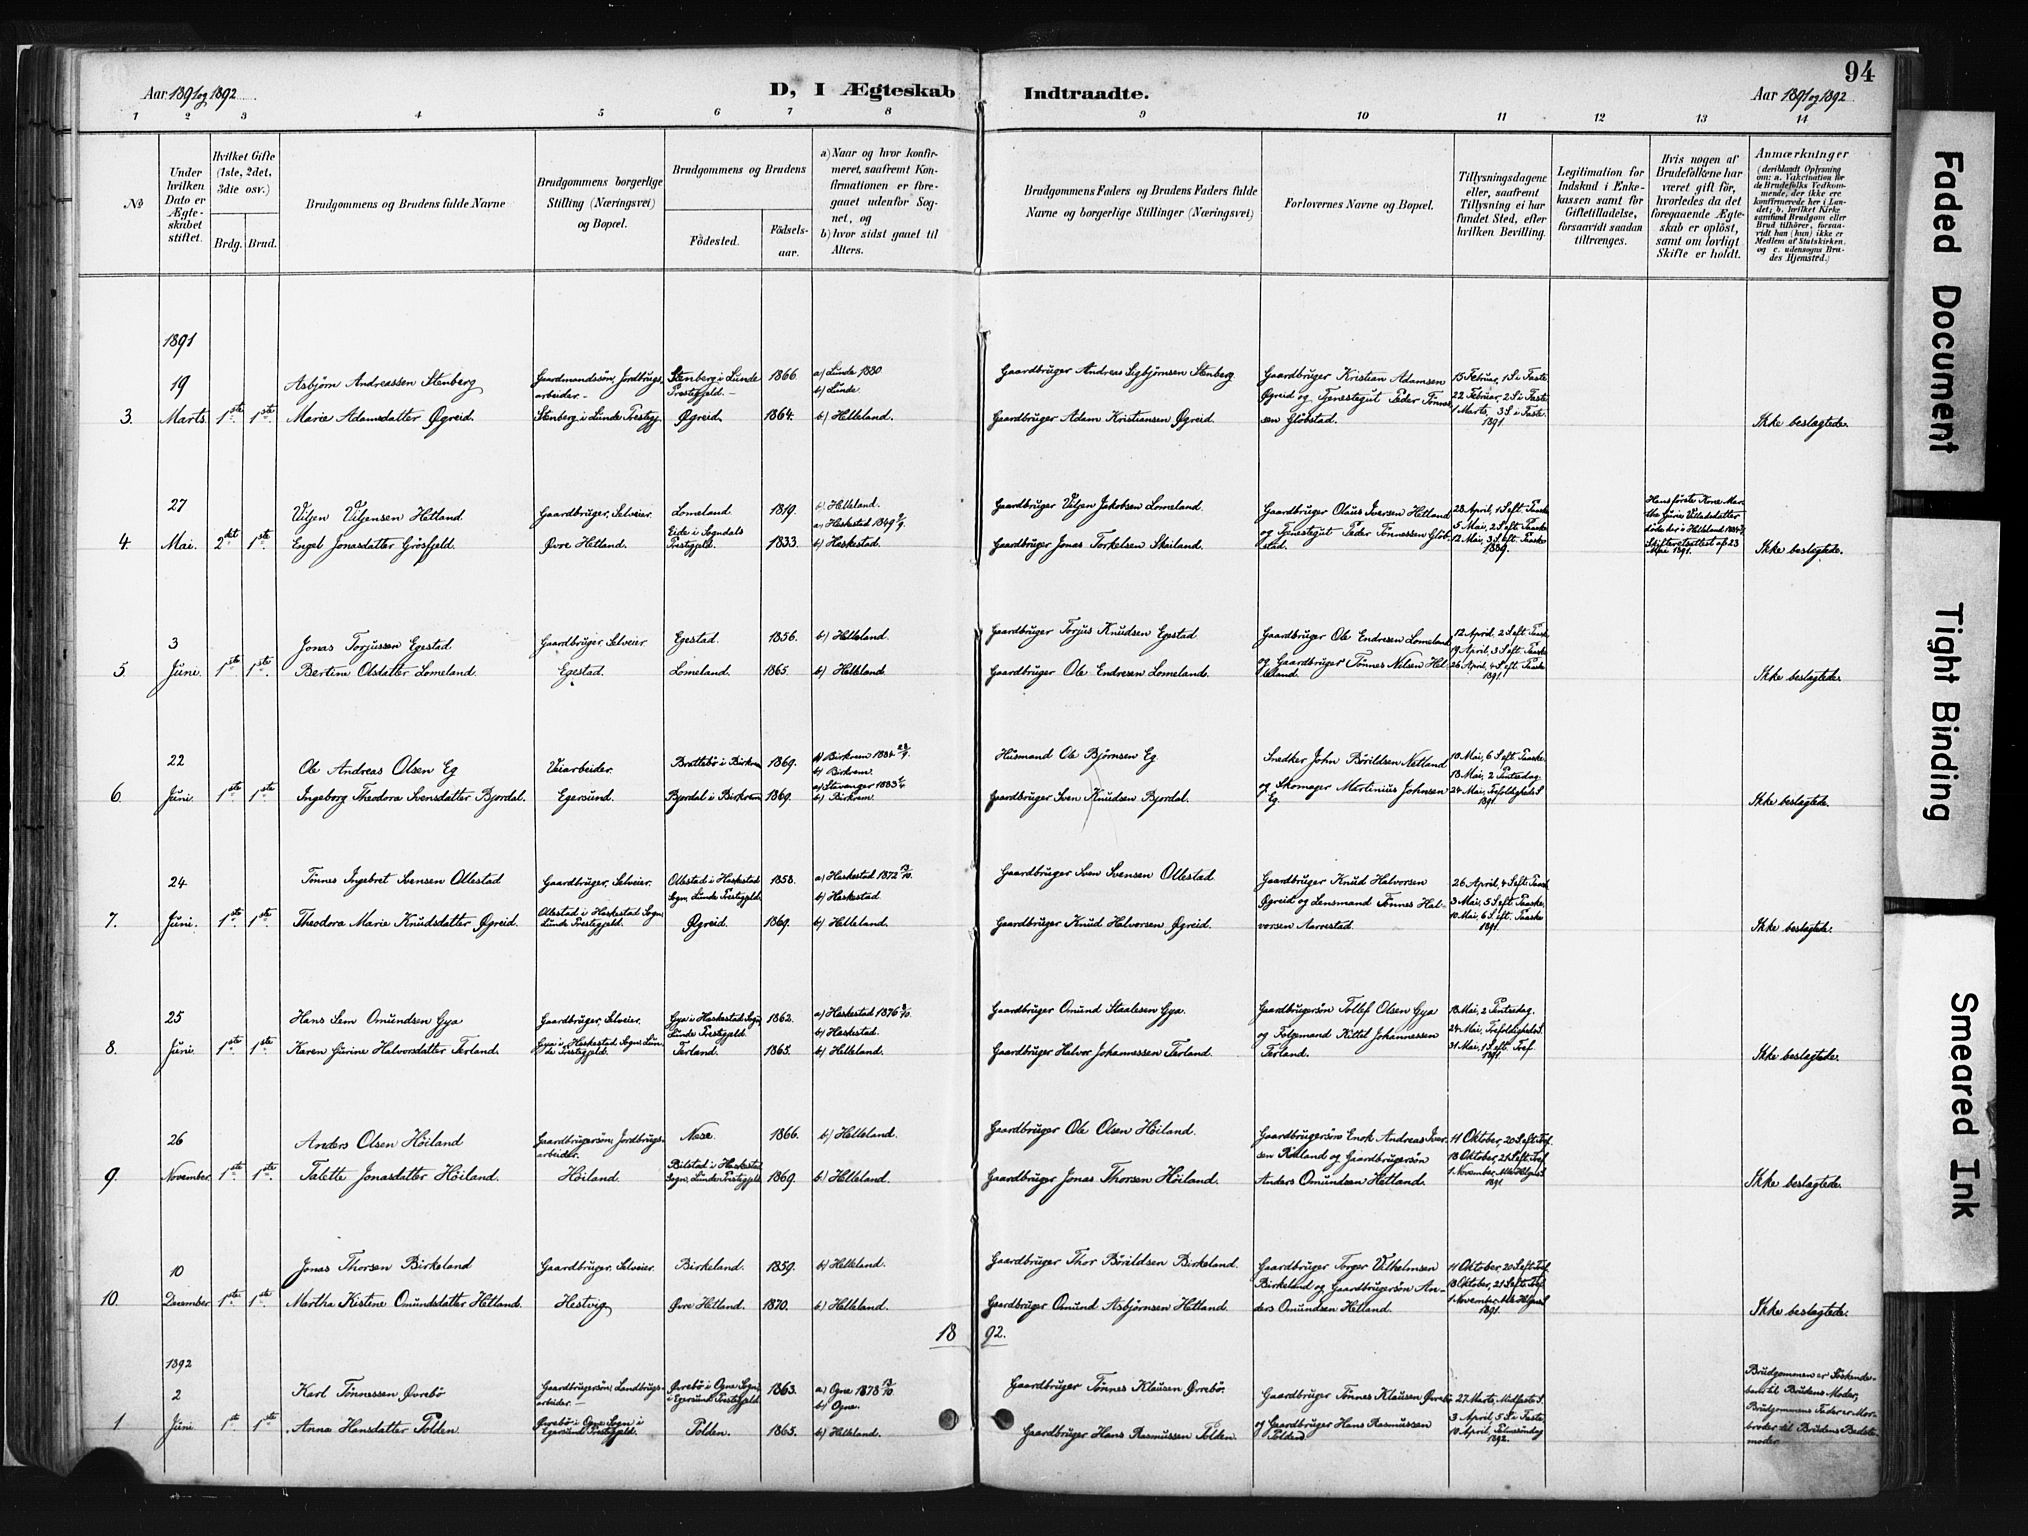 94
Aar 1891 og 1892
D, I Ægteskab Indtraadte.
Aar 1891 og 1892
1 2 3 4 5 6 7 8 9 10 11 12 13 14
No
Under hvilken Dato er Ægteskabet stiftet.
Hvilket Gifte (1ste, 2det, 3die osv.)
Brdg. Brud.
Brudgommens og Brudens fulde Navne
Brudgommens borgerlige Stilling (Næringsvei) og Bopæl.
Brudgommens og Brudens
Födested.
Födsels-aar.
a) Naar og hvor konfir-
meret, saafremt Kon-
firmationen er fore-
gaaet udenfor Sog-
net, og
b) hvor sidst gaaet til
Alters.
Brudgommens Faders og Brudens Faders fulde
Navne og borgerlige Stillinger (Næringsvei)
Forlovernes Navne og Bopæl.
Tillysningsdagene
eller, saafremt
Tillysning ei har
fundet Sted, efter
hvilken Bevilling.
Legitimation for
Indskud i Enke-
kassen samt for
Giftetilladelse,
forsaavidt saadan
tiltrænges.
Hvis nogen af
Brudefolkene har
været gift før,
hvorledes da det
foregaaende Ægte-
skab er oplöst,
samt om lovligt
Skifte er holdt.
Anmærkninger
(deriblandt Oplysning
om: a. Vakcination for
de Brudefolks Vedkom-
mende, der ikke ere
konfirmerede her i Lan-
det; b. hvilket Kirke
samfund Brudgom eller
Brud tilhörer, forsaa-
vidt han (hun) ikke er
Medlem af Statskirken,
og c. udensogns Bru-
des Hjemsted.)
1891
19
3. Marts. 1ste 1ste
Asbjørn Andreassen Stenberg
Marie Adamsdatter Øgreid.
Gaardmandssøn, Jordbrugs-
arbeider.
Stenberg i Lunde Prestegj.
Stenberg i Lunde
Prestegjeld.
Øgreid.
1866.
1864.
a) Lunde 1880
b) Lunde.
b) Helleland.
Gaardbruger Andreas Sigbjørnsen Stenberg.
Gaardbruger Adam Kristiansen Øgreid.
Gaardbruger Kristian Adamsen
Øgreid og Tjenestegut Peder Tønnes-
sen Glöbstad.
15 Februar, 1 S. i Faste
22 Februar, 2 S. i Faste
1 Marts, 3 S. i Faste.
1891.
Ikke beslægtede.
27
4. Mai. 2det 1ste
Viljen Viljensen Hetland
Engel Jonasdatter Grösfjeld.
Gaardbruger, Selveier.
Øvre Hetland.
Lomeland
Eide i Sogndals
Prestegjeld.
1819.
1833.
b) Helleland.
a) Heskestad 1849
b) Heskestad.
Gaardbruger Viljen Jakobsen Lomeland.
Gaardbruger Jonas Torkelsen Skailand.
Gaardbruger Olaus Iversen Hetland
og Tjenestegut Peder Tønnessen Glöb-
stad.
28 April, 1 S. eft. Paaske
5 Mai, 2 S. eft. Paaske
12 Mai, 3 S. eft. Paaske
1889.
Hans første Kone Mar-
the Gurie
døde her i Helleland
Skifteretsattest af 23
Mai 1891.
Ikke beslægtede.
3
5. Juni. 1ste 1ste
Jonas Torjussen Egestad
Bertine Olsdatter Lomeland.
Gaardbruger, Selveier
Egestad.
Egestad.
Lomeland.
1856.
1865.
b) Helleland.
b) Helleland.
Gaardbruger Torjus Knudsen Egestad
Gaardbruger Ole Endresen Lomeland.
Gaardbruger Ole Endresen Lomeland
og Gaardbruger Tønnes Nilsen Hel-
leland.
12 April, 2 S. eft. Paaske
19 April, 3 S. eft. Paaske.
26 April, 4 S. eft. Paaske
1891.
Ikke beslægtede.
22
6. Juni. 1ste 1ste
Ole Andreas Olsen Eg
Ingeborg Theodora Svensdatter Bjordal.
Veiarbeider.
Egersund.
Brattebö i Birkrem
Bjordal i Birkrem
1869.
1869.
a) Birkrem 1884
b) Birkrem.
a) Stavanger 1883
b) Birkrem.
Husmand Ole Bjørnsen Eg.
Gaardbruger Sven Knudsen Bjordal.
Snedker John Börildsen Netland
og Skomager Martinius Johnsen
Eg.
10 Mai, 6 S. eft. Paaske.
18 Mai, 2 Pintsedag.
24 Mai, Trefoldigheds S.
1891.
Ikke beslægtede.
24
7. Juni. 1ste 1ste
Tønnes Ingebret Svensen Ollestad
Theodora Marie Knudsdatter Øgreid.
Gaardbruger, Selveier.
Ollestad i Heskestad Sogn,
Lunde Prestegjeld.
Ollestad i Heskestad
Sogn, Lunde Prestegjeld.
Øgreid.
1858.
1869.
a) Heskestad 1872
b) Heskestad
b) Helleland.
Gaardbruger Sven Svensen Ollestad.
Gaardbruger Knud Halvorsen Øgreid.
Gaardbruger Knud Halvorsen
Øgreid og Lensmand Tønnes Hal-
vorsen Aarrestad.
26 April, 4 S. eft. Paask.
3 Mai, 5 S. eft. Paaske.
10 Mai, 6 S. eft. Paaske
1891.
Ikke beslægtede.
25
8. Juni. 1ste 1ste
Hans Sem Omundsen Gya
Karen Gurine Halvorsdatter Terland.
Gaardbruger, Selveier.
Gya i Heskestad Sogn, Lun-
de Prestegjeld.
Gya i Heskestad Sogn,
Lunde Prestegjeld.
Terland.
1862.
1865.
a) Heskestad 1876
b) Heskestad.
b) Helleland.
Gaardbruger Omund Staalesen Gya.
Gaardbruger Halvor Johannessen Terland.
Gaardbrugersøn Tollef Olsen Gya
og Kittel Johannessen
Terland.
18 Mai, 2 Pintsedag.
24 Mai, Trefoldigheds S.
31 Mai, 1 S. eft. Tref.
1891.
Ikke beslægtede.
26
9. November. 1ste 1ste
Anders Olsen Höiland
Talette Jonasdatter Höiland.
Gaardbrugersøn, Jordbrugs-
arbeider.
Höiland.
Nese.
Bilstad i Heskestad
Sogn, Lunde Prestegjeld.
1866.
1869.
b) Helleland.
b) Helleland.
Gaardbruger Ole Olsen Höiland.
Gaardbruger Jonas Thorsen Höiland.
Gaardbrugersøn Enok Andreas Iver-
sen Rötland og Gaardbrugersøn
Anders Omundsen Hetland.
11 Oktober, 20 S. eft. Tref.
18 Oktober, 21 S. eft. Tref.
1 November, Alle Helgens S.
1891.
Ikke beslægtede.
10
10. December. 1ste 1ste
Jonas Thorsen Birkeland
Martha Kistene Omundsdatter Hetland.
Gaardbruger, Selveier.
Hestvig
Birkeland.
Øvre Hetland.
1859.
1870.
b) Helleland.
b) Helleland.
Gaardbruger Thor Börildsen Birkeland.
Gaardbruger Omund Asbjørnsen Hetland.
Gaardbruger Torger Vilhelmsen
Birkeland og Gaardbrugersøn An-
ders Omundsen Hetland.
11 Oktober, 20 S. eft. Tref.
18 Oktober, 21 S. eft. Tref.
1 November, Alle Helgens S.
1891.
Ikke beslægtede.
18 92.
1892
2
1. Juni 1ste 1ste
Karl Tønnessen Øvrebö
Anna Hansdatter Polden.
Gaardbrugersøn, Landbrugs-
arbeider.
Øvrebö i Ogne Sogn i
Egersund Prestegjeld.
Øvrebö i Ogne Sogn,
i Egersund Prestegjeld.
Polden.
1863.
1865.
a) Ogne 1878
b) Ogne.
b) Helleland.
Gaardbruger Tønnes Klausen Øvrebö.
Gaardbruger Hans Rasmussen Polden.
Gaardbruger Tønnes Klausen Øvrebö
og Gaardbruger Hans Rasmussen
Polden.
27 Marts, Midfaste S.
3 April, 5 S. i Faste,
10 April, Palmesöndag
1892.
Brudgommens er Söskende-
barn til Brudens Moder,
Brudgommens Fader er Mor-
broder til Brudens Bedste-
moder.
Faded Document
Tight Binding
Smeared Ink